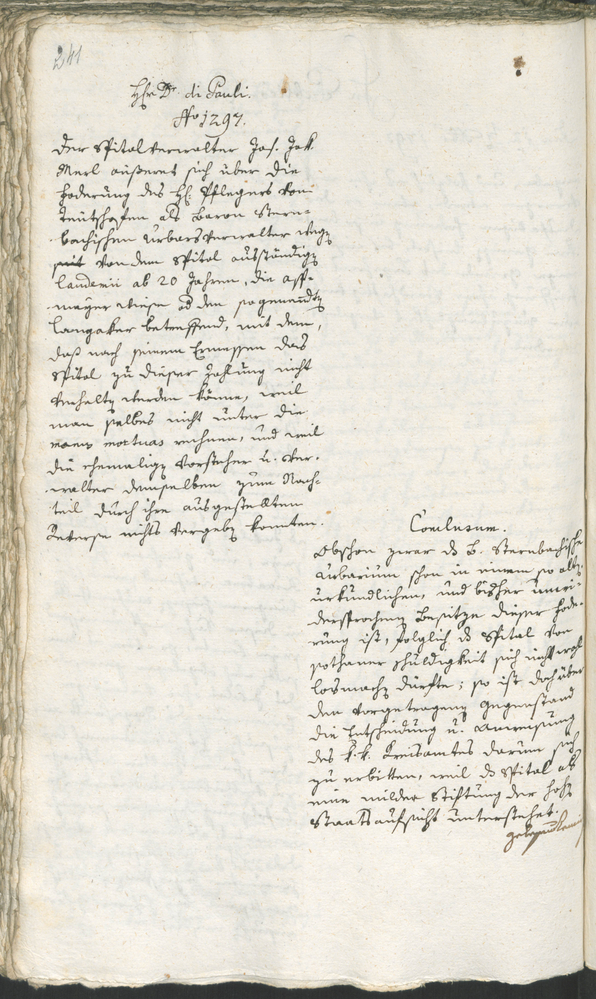 241
Hr Dr. di Pauli.
No 1297.
Der Spitalverwalter Jos. Jak.
Merl äußeret sich über die
Foderung des H. Pflegers von
Teutzhofen als Baron Stern-
bachischen Urbarsverwalter wegen
mit von dem Spital ausständigen
Laudemii ab 20 Jahren, die
mayer Wiese od den sogenandten
Langaker betreffend, mit dem,
daß nach seinem Ermessen das
Spital zu dieser Zahlung nicht
verhalten werden könne, weil
man selbes nicht unter die
manus mortuas rechnen, und weil
die ehemaligen Vorsteher u. Ver-
walter demselben zum Nach-
teil durch ihre ausgestellten
Reverse nichts vergeben konnten.
Conclusum.
Obschon zwar ds B. Sternbachische
Urbarium schon in einem so alten,
urkundlichen, und bisher unwi-
dersprochenen Besitze dieser Fode-
rung ist, folglich ds Spital von
sothaner Schuldigkeit sich nicht wohl
losmachen dürfte; so ist doch über
den vorgetragenen Gegenstand
die Entscheidung u. Anweisung
des k. k. Kreisamtes darum sich
zu erbitten, weil ds Spital als
eine milde Stiftung der hohen
Staatsaufsicht unterstehet.